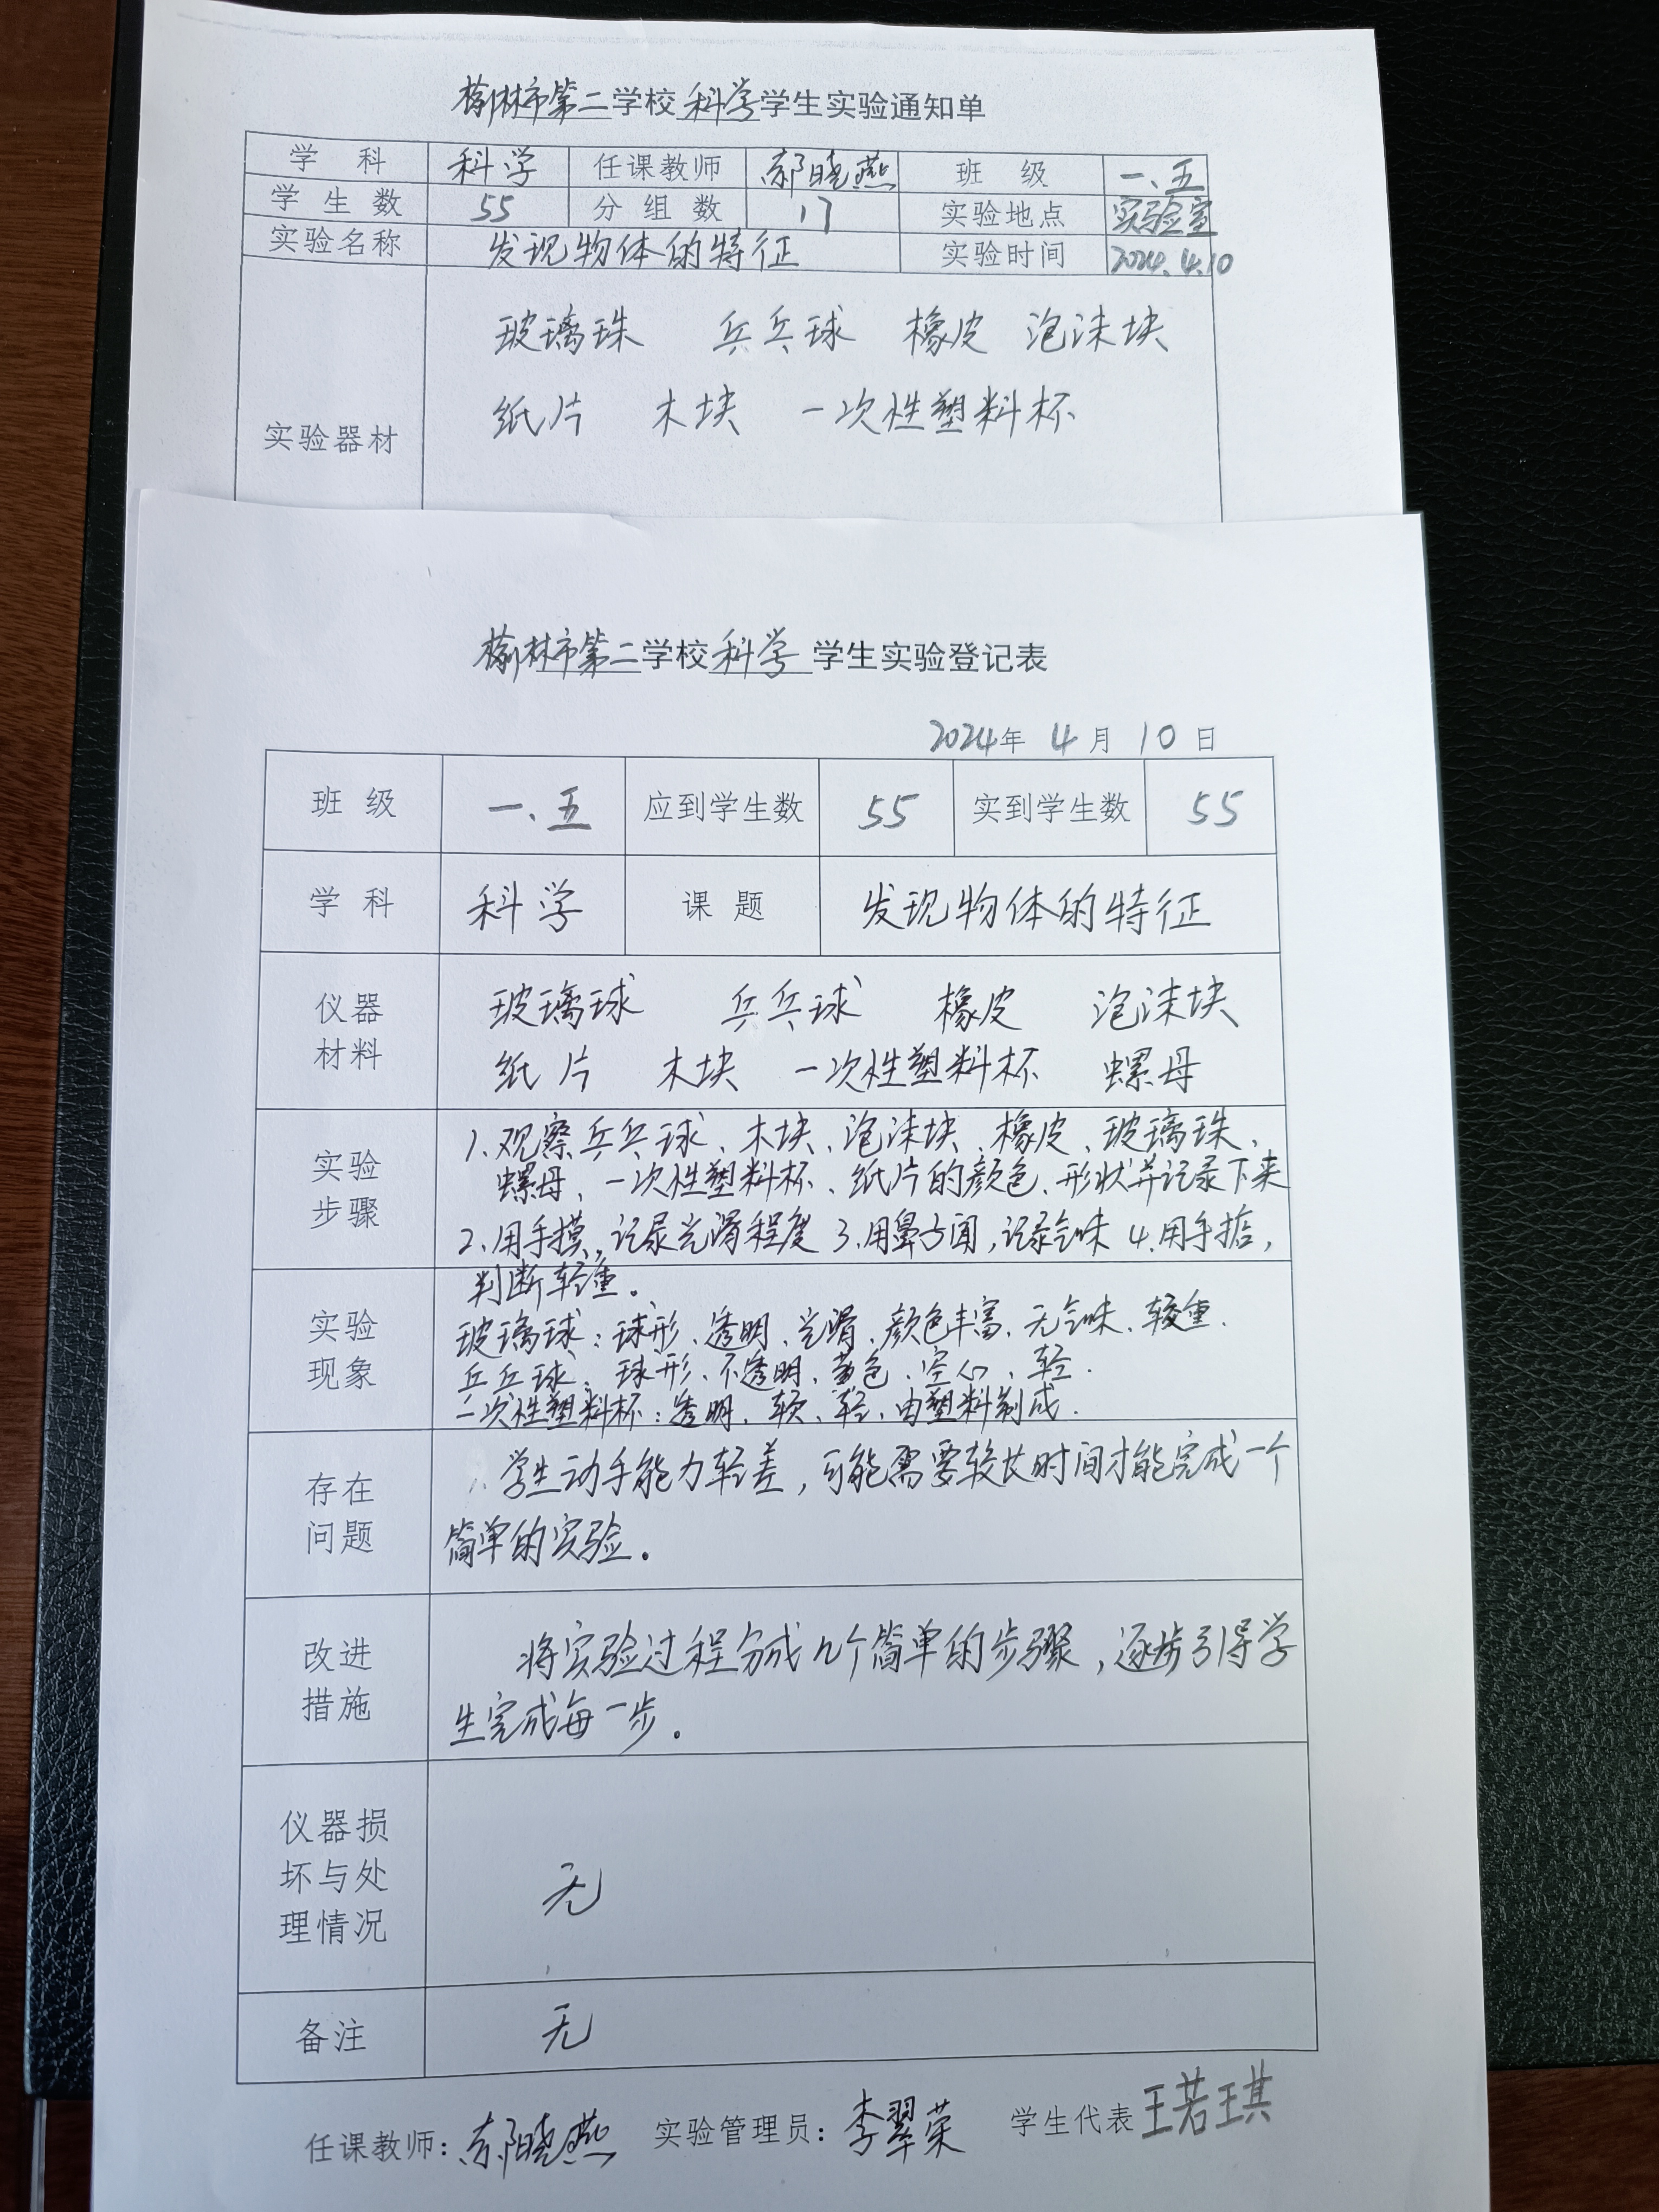 榆林市第二学校科学学生实验通知单
学 科 科学 任课教师 郝晓燕 班 级 一.五
学 生 数 55 分 组 数 17 实验地点 实验室
实验名称 发现物体的特征 实验时间 2024.4.10
玻璃珠 乒乓球 橡皮 泡沫块
纸片 木块 一次性塑料杯
实验器材
榆林市第二学校科学学生实验登记表
2024年 4月 10日
班 级 一.五 应到学生数 55 实到学生数 55
学 科 科学 课 题 发现物体的特征
仪器
材料
玻璃球 乒乓球 橡皮 泡沫块
纸片 木块 一次性塑料杯 螺母
实验
步骤
1.观察乒乓球、木块、泡沫块、橡皮、玻璃珠、
螺母、一次性塑料杯、纸片的颜色、形状并记录下来
2.用手摸,记录光滑程度 3.用鼻子闻,记录气味 4.用手掂,
判断轻重。
实验
现象
玻璃球:球形、透明、光滑、颜色丰富、无气味、较重.
乒乓球:球形、不透明、黄色、空心、轻.
一次性塑料杯:透明、软、轻、由塑料制成.
存在
问题
学生动手能力较差,可能需要较长时间才能完成一个
简单的实验。
改进
措施
将实验过程分成几个简单的步骤,逐步引导学
生完成每一步。
仪器损
坏与处
理情况
无
备注 无
任课教师:郝晓燕 实验管理员:李翠荣 学生代表 王若琪